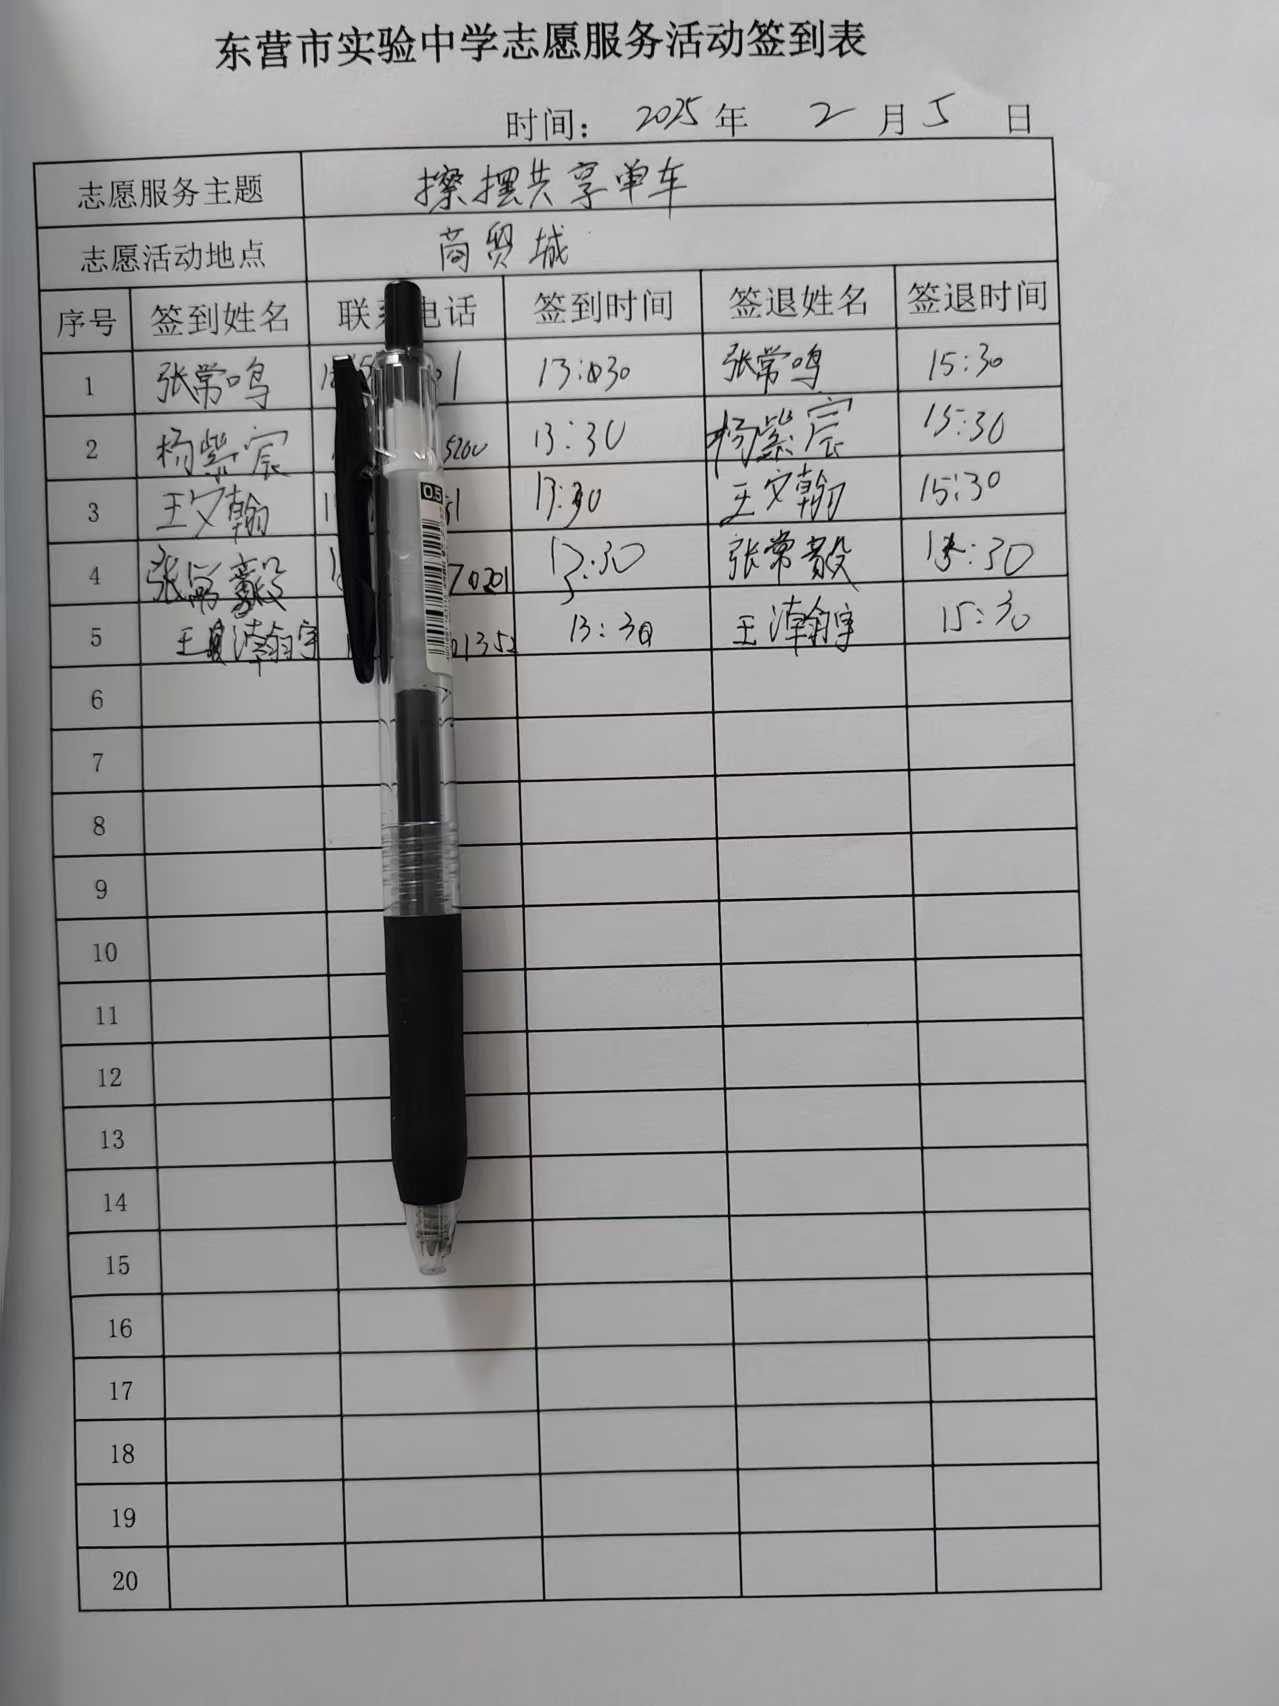 东营市实验中学志愿服务活动签到表
时间： 2025 年 2 月 5 日
志愿服务主题 擦摆共享单车
志愿活动地点 商贸城
序号 签到姓名 联系电话 签到时间 签退姓名 签退时间
1 张常鸣 1 13:30 张常鸣 15:30
2 杨紫宸 5200 13:30 杨紫宸 15:30
3 王文翰 1 13:30 王文翰 15:30
4 张常毅 70201 13:30 张常毅 15:30
5 王瀚宇 01352 13:30 王瀚宇 15:30
6
7
8
9
10
11
12
13
14
15
16
17
18
19
20
0.5